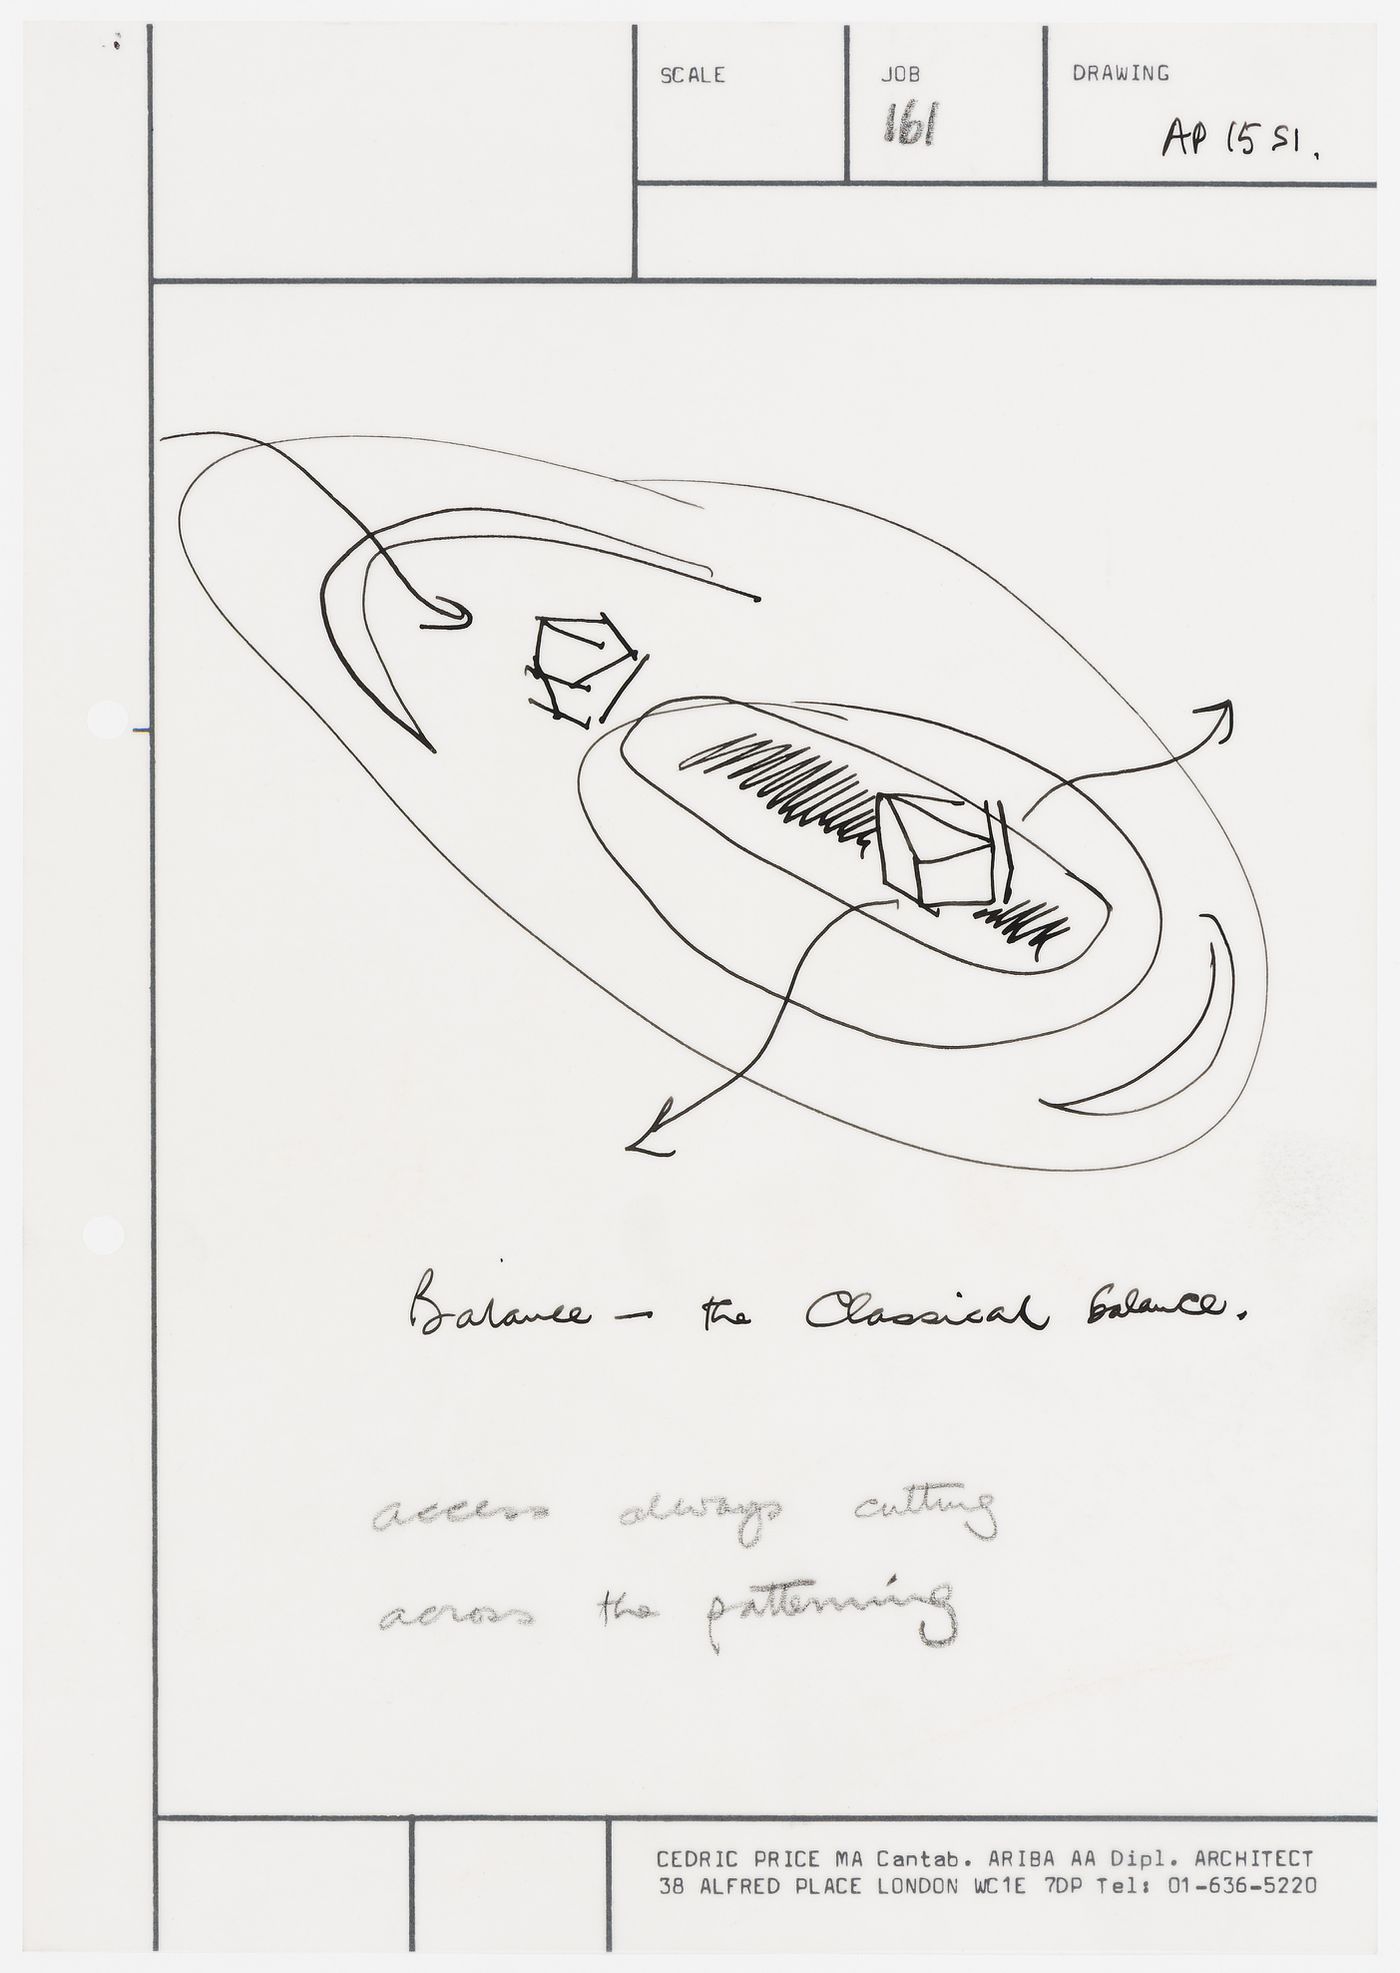 SCALE
JOB
DRAWING
161
AP 15 S1.
Balance — the Classical balance.
access always cutting
across the patterning
CEDRIC PRICE MA Cantab. ARIBA AA Dipl. ARCHITECT
38 ALFRED PLACE LONDON WC1E 7DP Tel: 01-636-5220